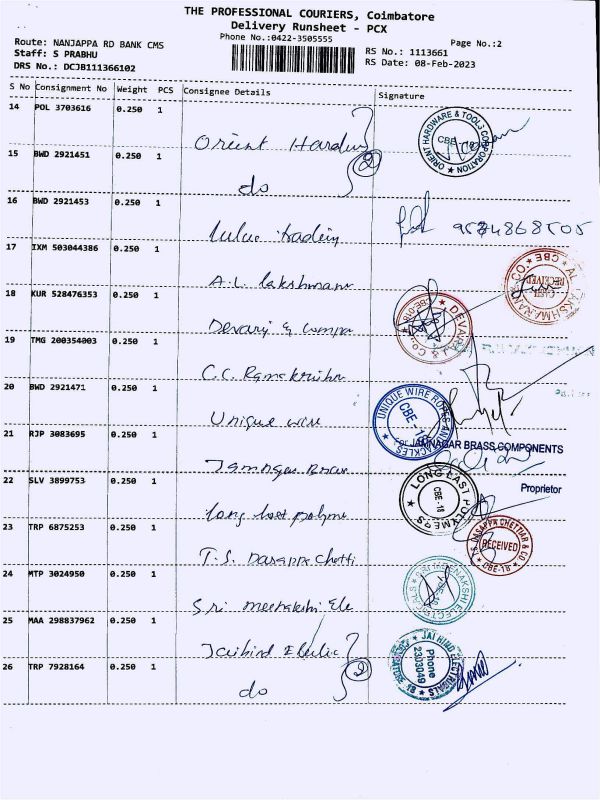 THE PROFESSIONAL COURIERS, Coimbatore
Delivery Runsheet - PCX
Phone No.:0422-3505555
Page No.:2
Route: NANJAPPA RD BANK CMS
Staff: S PRABHU
DRS No.: DCJB111366102
RS No.: 1113661
RS Date: 08-Feb-2023
S No Consignment No Weight PCS Consignee Details Signature
14 POL 3703616 0.250 1
Orient Hardw
ORIENT HARDWARE & TOOLS CORPORATION CBE - 18
15 BWD 2921451 0.250 1
do
2
16 BWD 2921453 0.250 1
lulu trading
17 IXM 503044386 0.250 1
A.L. lakshmana
A. LAKSHMANAN & CO. CBE
RECEIVED
18 KUR 528476353 0.250 1
Devaraj & Compa
DEVARAJ & CO., CBE-18
19 TMG 200354003 0.250 1
C.C. Ramakrishn
20 BWD 2921471 0.250 1
Unique wire
UNIQUE WIRE ROPES AND TACKLES CBE - 18
21 RJP 3083695 0.250 1
Jamnagar Brass
For JAMNAGAR BRASS COMPONENTS
Proprietor
22 SLV 3899753 0.250 1
Long last polyme
LONG LAST POLYMERS CBE-18
23 TRP 6875253 0.250 1
T.S. Dasappa Chetti
T.S. DASAPPA CHETTIAR & CO RECEIVED CBE-18
24 MTP 3024950 0.250 1
Sri meenakshi Ele
SRI MEENAKSHI ELECTRICALS CBE-18
25 MAA 298837962 0.250 1
Jaihind Eletric
JAI HIND ELECTRICALS
Phone
2303049
26 TRP 7928164 0.250 1
do
2